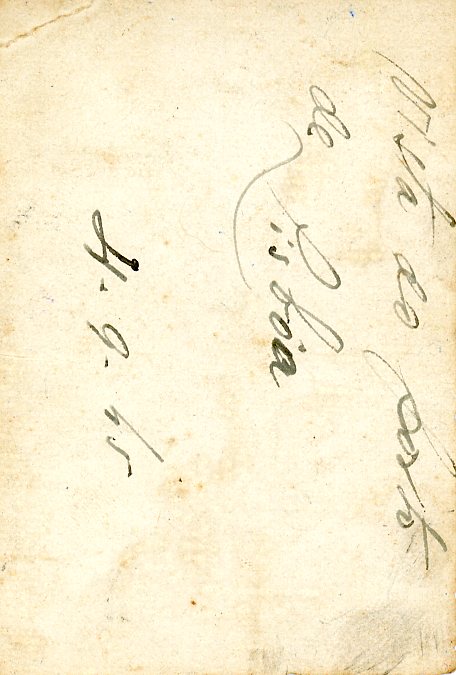 Vista do Porto
de Lisboa
4-9-45